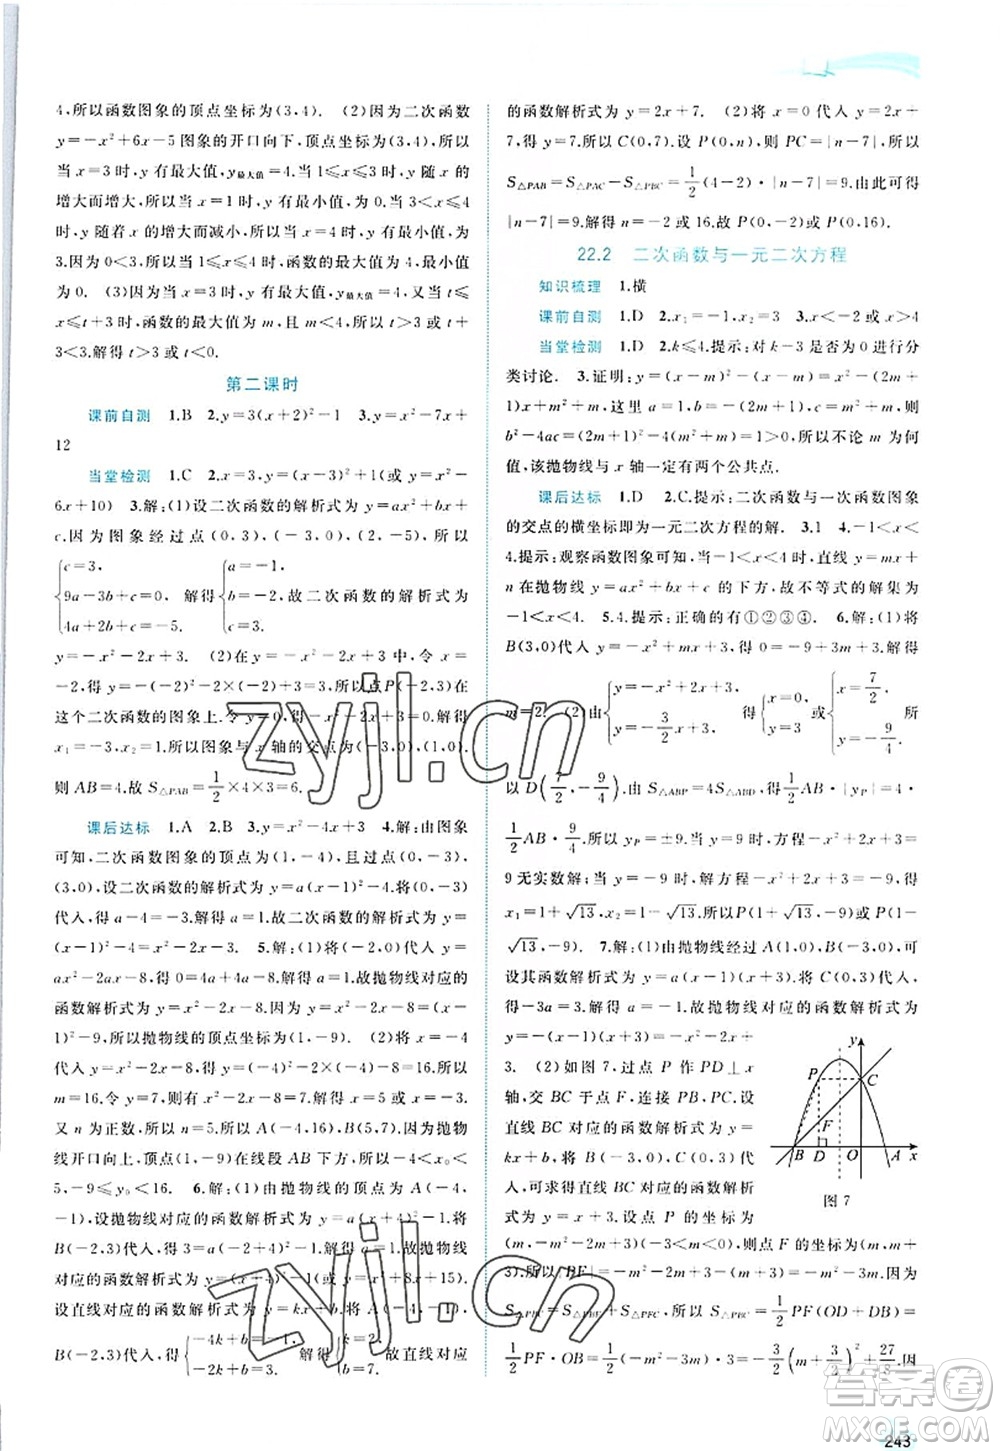 4,所以函数图象的顶点坐标为(3,4). (2)因为二次函数
y=-x²+6x-5图象的开口向下,顶点坐标为(3,4),所以
当x=3时,y有最大值,y最大值=4.当1≤x≤3时,y随x的
增大而增大,所以当x=1时,y有最小值,为0.当3<x≤4
时,y随着x的增大而减小,所以当x=4时,y有最小值,为
3.所以当1≤x≤4时,函数的最大值为4,最小值
为0. (3)因为当t≤x≤t+3时,
t≤x≤t+3时,函数的最大值为m,且m<4,所以t>3或t+
3<3.解得t>3或t<0.
第二课时
课前自测 1.B 2.y=3(x+2)²-1 3.y=x²-7x+
12
当堂检测 1.C 2.x=3,y=(x-3)²+1(或y=x²-
6x+10) 3.解:(1)设二次函数的解析式为y=ax²+bx+
c.因为图象经过点(0,3),(-3,0),(2,-5),所以
{c=3, 9a-3b+c=0, 4a+2b+c=-5. 解得{a=-1, b=-2, c=3. 故二次函数的解析式为
y=-x²-2x+3. (2)在y=-x²-2x+3中,令x=
-2,得y=-(-2)²-2×(-2)+3=3,所以点P(-2,3)在
这个二次函数的图象上.令y=0,得-x²-2x+3=0.解得
x₁=-3,x₂=1.所以图象与x轴的交点为(-3,0),(1,0).
则AB=4.故S△PAB=1/2×4×3=6.
课后达标 1.A 2.B 3.y=x²-4x+3 4.解:由图象
可知,二次函数图象的顶点为(1,-4),且过点(-1,0),
(3,0),设二次函数的解析式为y=a(x-1)²-4.将(-1,0)
代入,得4a-4=0.解得a=1.故二次函数的解析式为y=
(x-1)²-4=x²-2x-3. 5.解:(1)将(-2,0)代入y=
ax²-2x-8,得0=4a+4-8.解得a=1.故抛物线对应的
函数解析式为y=x²-2x-8.因为y=x²-2x-8=(x-
1)²-9,所以抛物线的顶点坐标为(1,-9). (2)将x=-4
代入y=x²-2x-8,得y=(-4)²-2×(-4)-8=16.所以
m=16.
又n为正数,所以n=5.所以A(-4,16),B(5,7).因为抛物
线开口向上,点P(x₀,y₀)在线段AB下方,所以-4<x₀<
5,-9≤y₀<16. 6.解:(1)由抛物线的顶点为A(-4,
-1),设抛物线对应的函数解析式为y=a(x+4)²-1.将
B(-2,3)代入,得3=a(-2+4)²-1.解得a=1.故抛物线
对应的函数解析式为y=(x+4)²-1(或y=x²+8x+15).
B(-2,3)代入,得{-4k+b=-1, -2k+b=3. 故直线对应
的函数解析式为y=2x+7. (2)将x=0代入y=2x+
7,得y=7.所以C(0,7).设P(0,n),则PC=|n-7|.所以
S△PAB=S△PAC-S△PBC=1/2(4-2)·|n-7|=9.由此可得
|n-7|=9.解得n=-2或16.故P(0,-2)或P(0,16).
22.2 二次函数与一元二次方程
知识梳理 1.横
课前自测 1.D 2.x₁=-1,x₂=3 3.x<-2或x>4
当堂检测 1.D 2.k≤4.提示:对k-3是否为0进行分
类讨论. 3.证明:y=(x-m)²-(x-m)=x²-(2m+1)x+
m²+m,这里a=1,b=-(2m+1),c=m²+m,则
b²-4ac=(2m+1)²-4(m²+m)=1>0.所以不论m为何
值,该抛物线与x轴一定有两个公共点.
课后达标 1.D 2.C.提示:二次函数与一次函数图象
的交点的横坐标即为一元二次方程的解. 3.1 4.-1<x<
4.提示:观察函数图象可知,当-1<x<4时,直线y=mx+
n在抛物线y=ax²+bx+c的下方,故不等式的解集为
-1<x<4. 5.4.提示:正确的有①②③④. 6.解:(1)将
B(3,0)代入y=-x²+mx+3,得0=-9+3m+3.解得
m=2. (2)由{y=-x²+2x+3, y=-3/2x+3 得{x=0, y=3或{x=7/2, y=-9/4. 所
以D(7/2,-9/4).因为S△ABP=4S△ABD,所以1/2AB·|yP|=4·
1/2AB·9/4.所以|yP|=9,所以yP=±9.当y=9时,方程-x²+2x+3=
9无实数解;当y=-9时,解方程-x²+2x+3=-9,得
x₁=1+√13,x₂=1-√13.所以P(1+√13,-9)或P(1-
√13,-9). 7.解:(1)由抛物线经过A(1,0),B(-3,0),可
设其函数解析式为y=a(x-1)(x+3).将C(0,3)代入,
得-3a=3.解得a=-1.故抛物线对应的函数解析式为
y=-(x-1)(x+3)=-x²-2x+
3. (2)如图7,过点P作PD⊥x
轴,交BC于点F,连接PB,PC.设
直线BC对应的函数解析式为y=
kx+b.
可求得直线BC对应的函数解析式
为y=x+3.设点P的坐标为
(m,-m²-2m+3),则点F的坐标为(m,m+
3).所以PF=-m²-2m+3-(m+3)=-m²-3m.因为
S△PBC=S△PBF+S△PFC,所以S△PBC=1/2PF(OD+DB)=
1/2PF·OB=3/2(-m²-3m)=-3/2(m+3/2)²+27/8.因
y
P
C
F
B
D
O
A
x
图7
zyjl.cn
zyjl.cn
答案圈
MXQE.COM
243